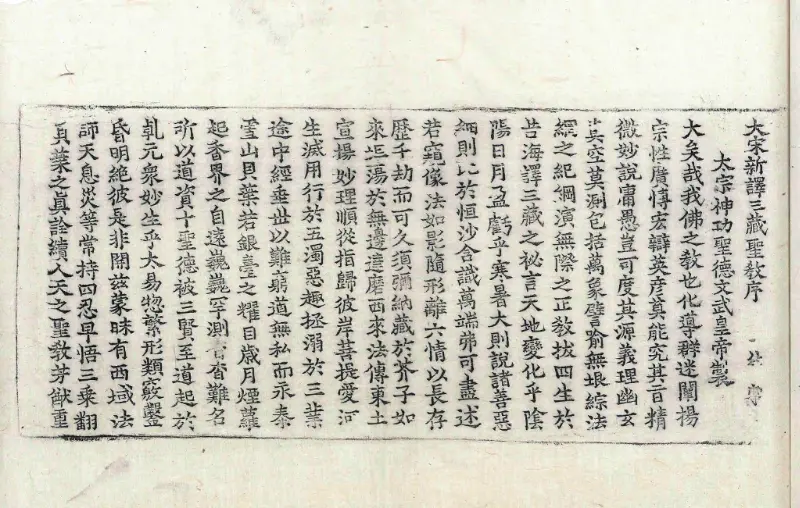 大宋新譯三藏聖教序
太宗神功聖德文武皇帝製
大矣哉我佛之教也化導群迷闡揚
宗性廣博宏辯英彦莫能究其旨精
微妙說庸愚豈可度其源義理幽玄
真空莫測包括萬象譬喻無垠綜法
網之紀綱演無際之正教拔四生於
苦海譯三藏之祕言天地變化乎陰
陽日月盈虧乎寒暑大則說諸善惡
細則比於恒沙含識萬端弗可盡述
若窺像法如影隨形離六情以長存
歷千劫而可久須彌納藏於芥子如
來坦蕩於無邊達磨西來法傳東土
宣揚妙理順從指歸彼岸菩提愛河
生滅用行於五濁惡趣拯溺於三業
途中經垂世以難窮道無私而永泰
雪山貝葉若銀臺之耀目歲月煙蘿
起香界之自遠巍巍罕測杳杳難名
所以道資十聖德被三賢至道起於
乹元衆妙生乎太易惣繁形類竅鑿
昏明絶彼是非開茲蒙昧有西域法
師天息災等常持四忍早悟三乘翻
貝葉之真詮續人天之聖教芳猷重